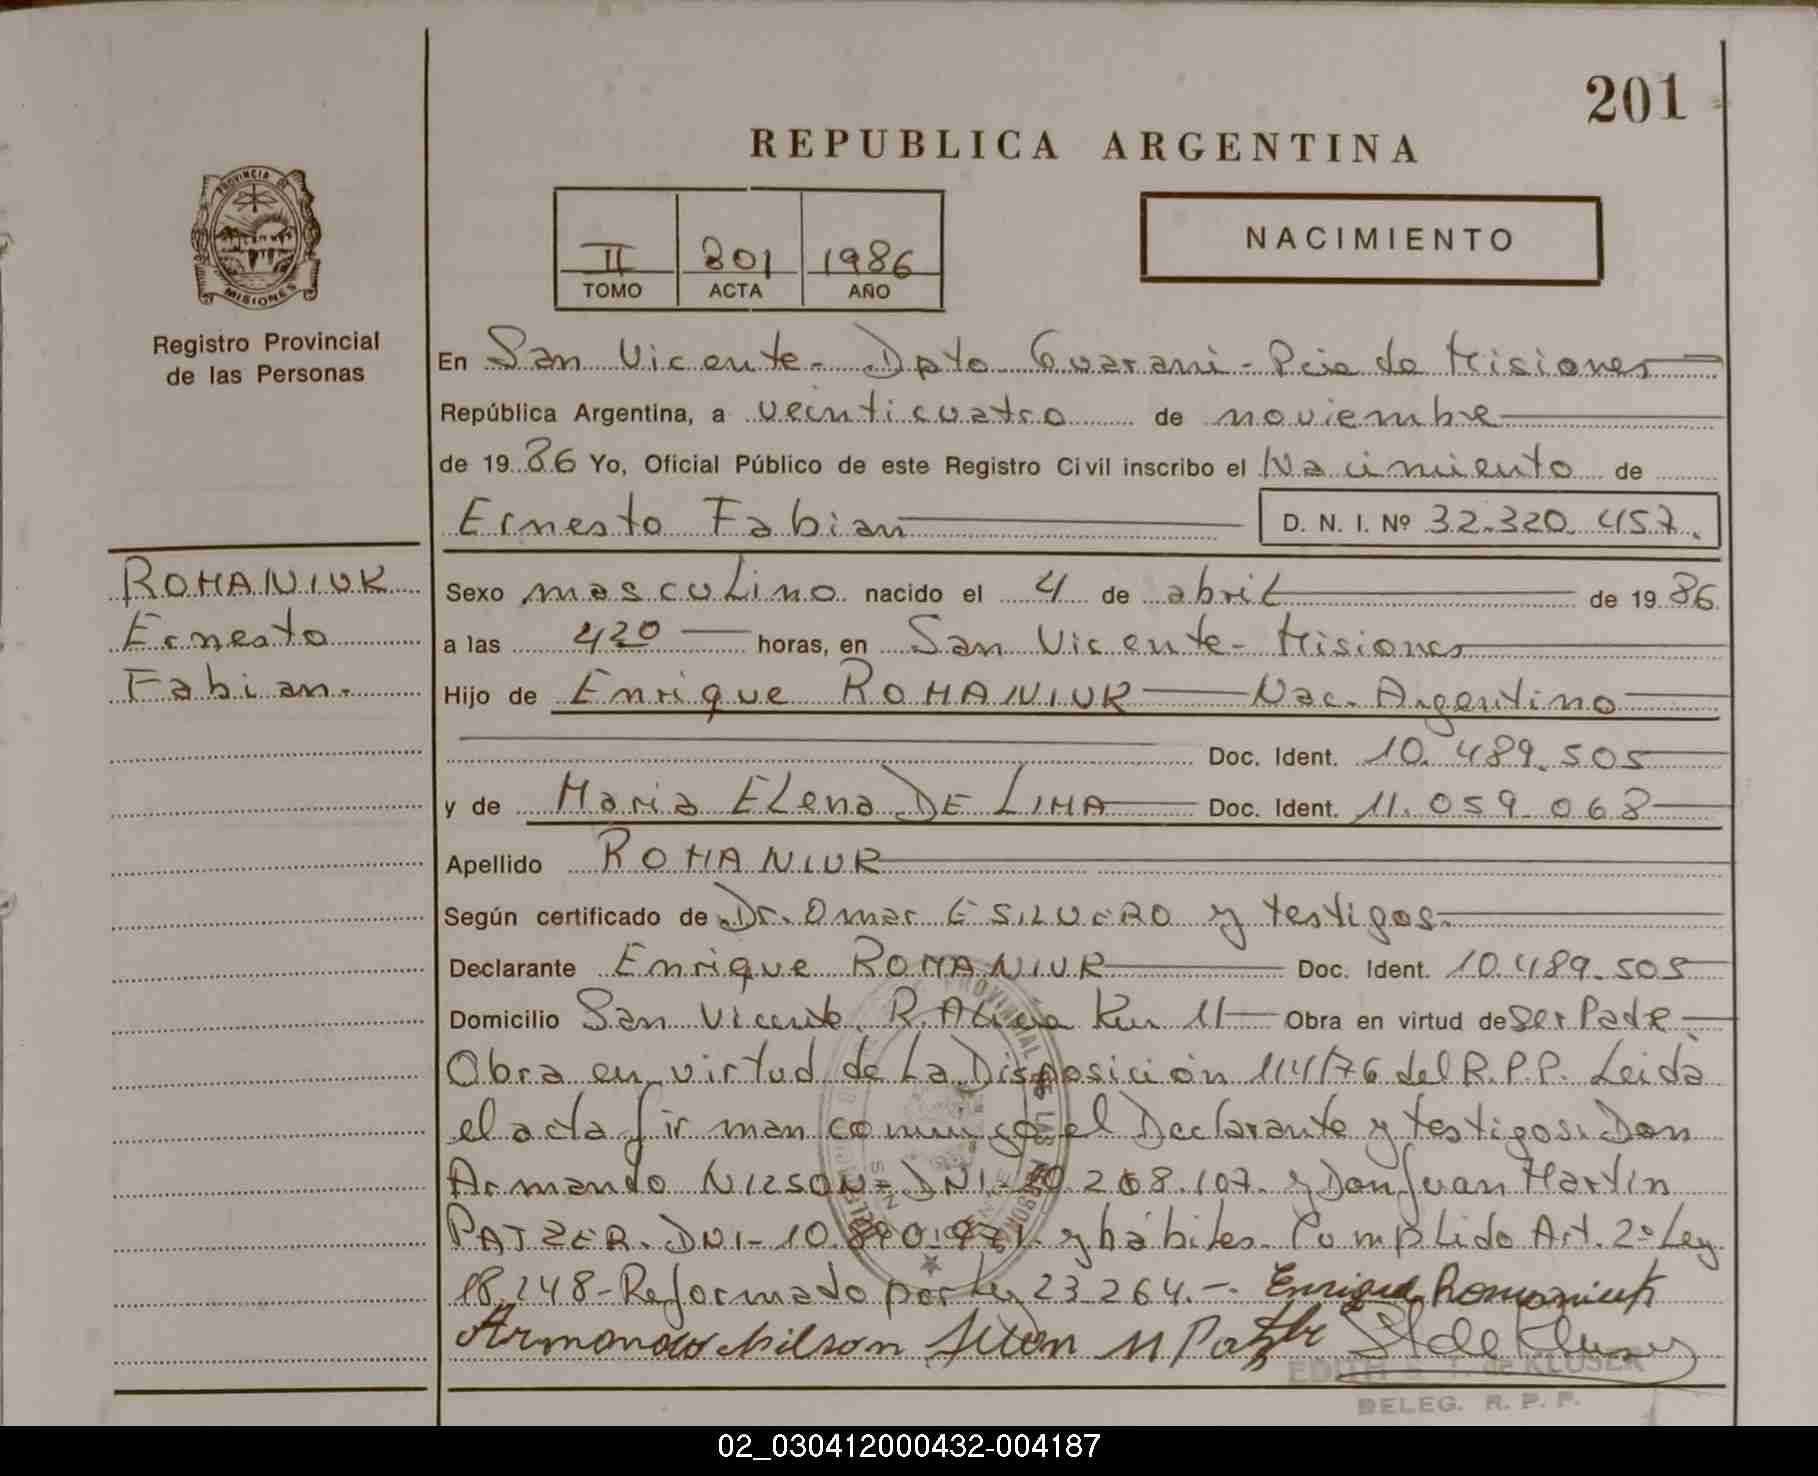 201
REPUBLICA ARGENTINA
PROVINCIA DE
MISIONES
Registro Provincial
de las Personas
II 801 1986
TOMO ACTA AÑO
NACIMIENTO
En San Vicente - Dpto Guarani - Pcia de Misiones
República Argentina, a veinticuatro de noviembre
de 1986 Yo, Oficial Público de este Registro Civil inscribo el Nacimiento de
Ernesto Fabian D. N. I. Nº 32.320.457.
ROMANIUK
Ernesto
Fabian.
Sexo masculino nacido el 4 de abril de 1986
a las 420 horas, en San Vicente - Misiones
Hijo de Enrique ROMANIUK Nac. Argentino
Doc. Ident. 10.489.505
y de Maria Elena DE LIMA Doc. Ident. 11.059.068
Apellido ROMANIUK
Según certificado de Dr. Omar E SILVERO y testigos.
Declarante Enrique ROMANIUK Doc. Ident. 10.489.505
Domicilio San Vicente. R. Km 11 Obra en virtud de ser Padre
Obra en virtud de La Disposición 114/76 del R.P.P. Leida
el acta firman conmigo el Declarante y testigos: Don
Armando NILSON - DNI - 20.208.107. y Don Juan Martin
PATZER. DNI - 10.890.971. y hábiles. Cumplido Art. 2º Ley
18.248 - Reformado por Ley 23.264. -. Enrique Romaniuk
Armando Nilson Juan M Patzer
EDITH E. T. de KLUSER
DELEG. R. P. P.
02_030412000432-004187